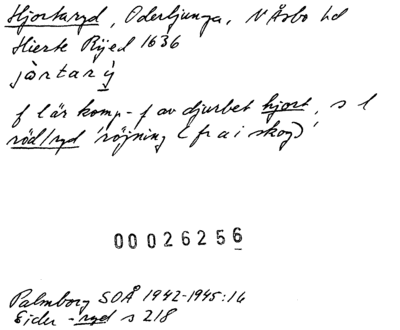 Hjortaryd, Oderljunga, N Åsbo hd
Hierte Rÿed 1636
jòrtarý
f l är komp. f av djurbet hjort, s l
röd/ryd 'röjning (fr a i skog)'
00026256
Palmborg SOÅ 1942-1945:16
Sjder -ryd s 218